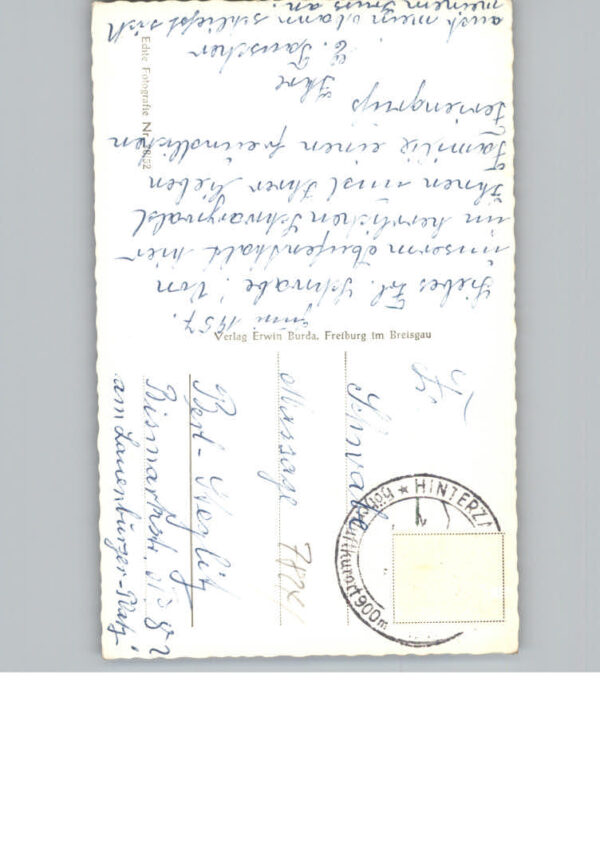 Juni 1957.
Liebes Frl. Schwabe! Von
unserm Aufenthalt hier
im herrlichen Schwarzwald
Ihnen und Ihrer lieben
Familie einen freundlichen
Feriengruß
Ihre
E. Tauscher
auch mein Mann schließt sich
meinem Gruß an.
Echte Fotografie Nr.
Verlag Erwin Burda, Freiburg im Breisgau
Schwabe
Massage
Berl.-Steglitz
Bismarckstr.
am Lauenburger-Platz
★ HINTERZA
Höhenluftkurort 900 m